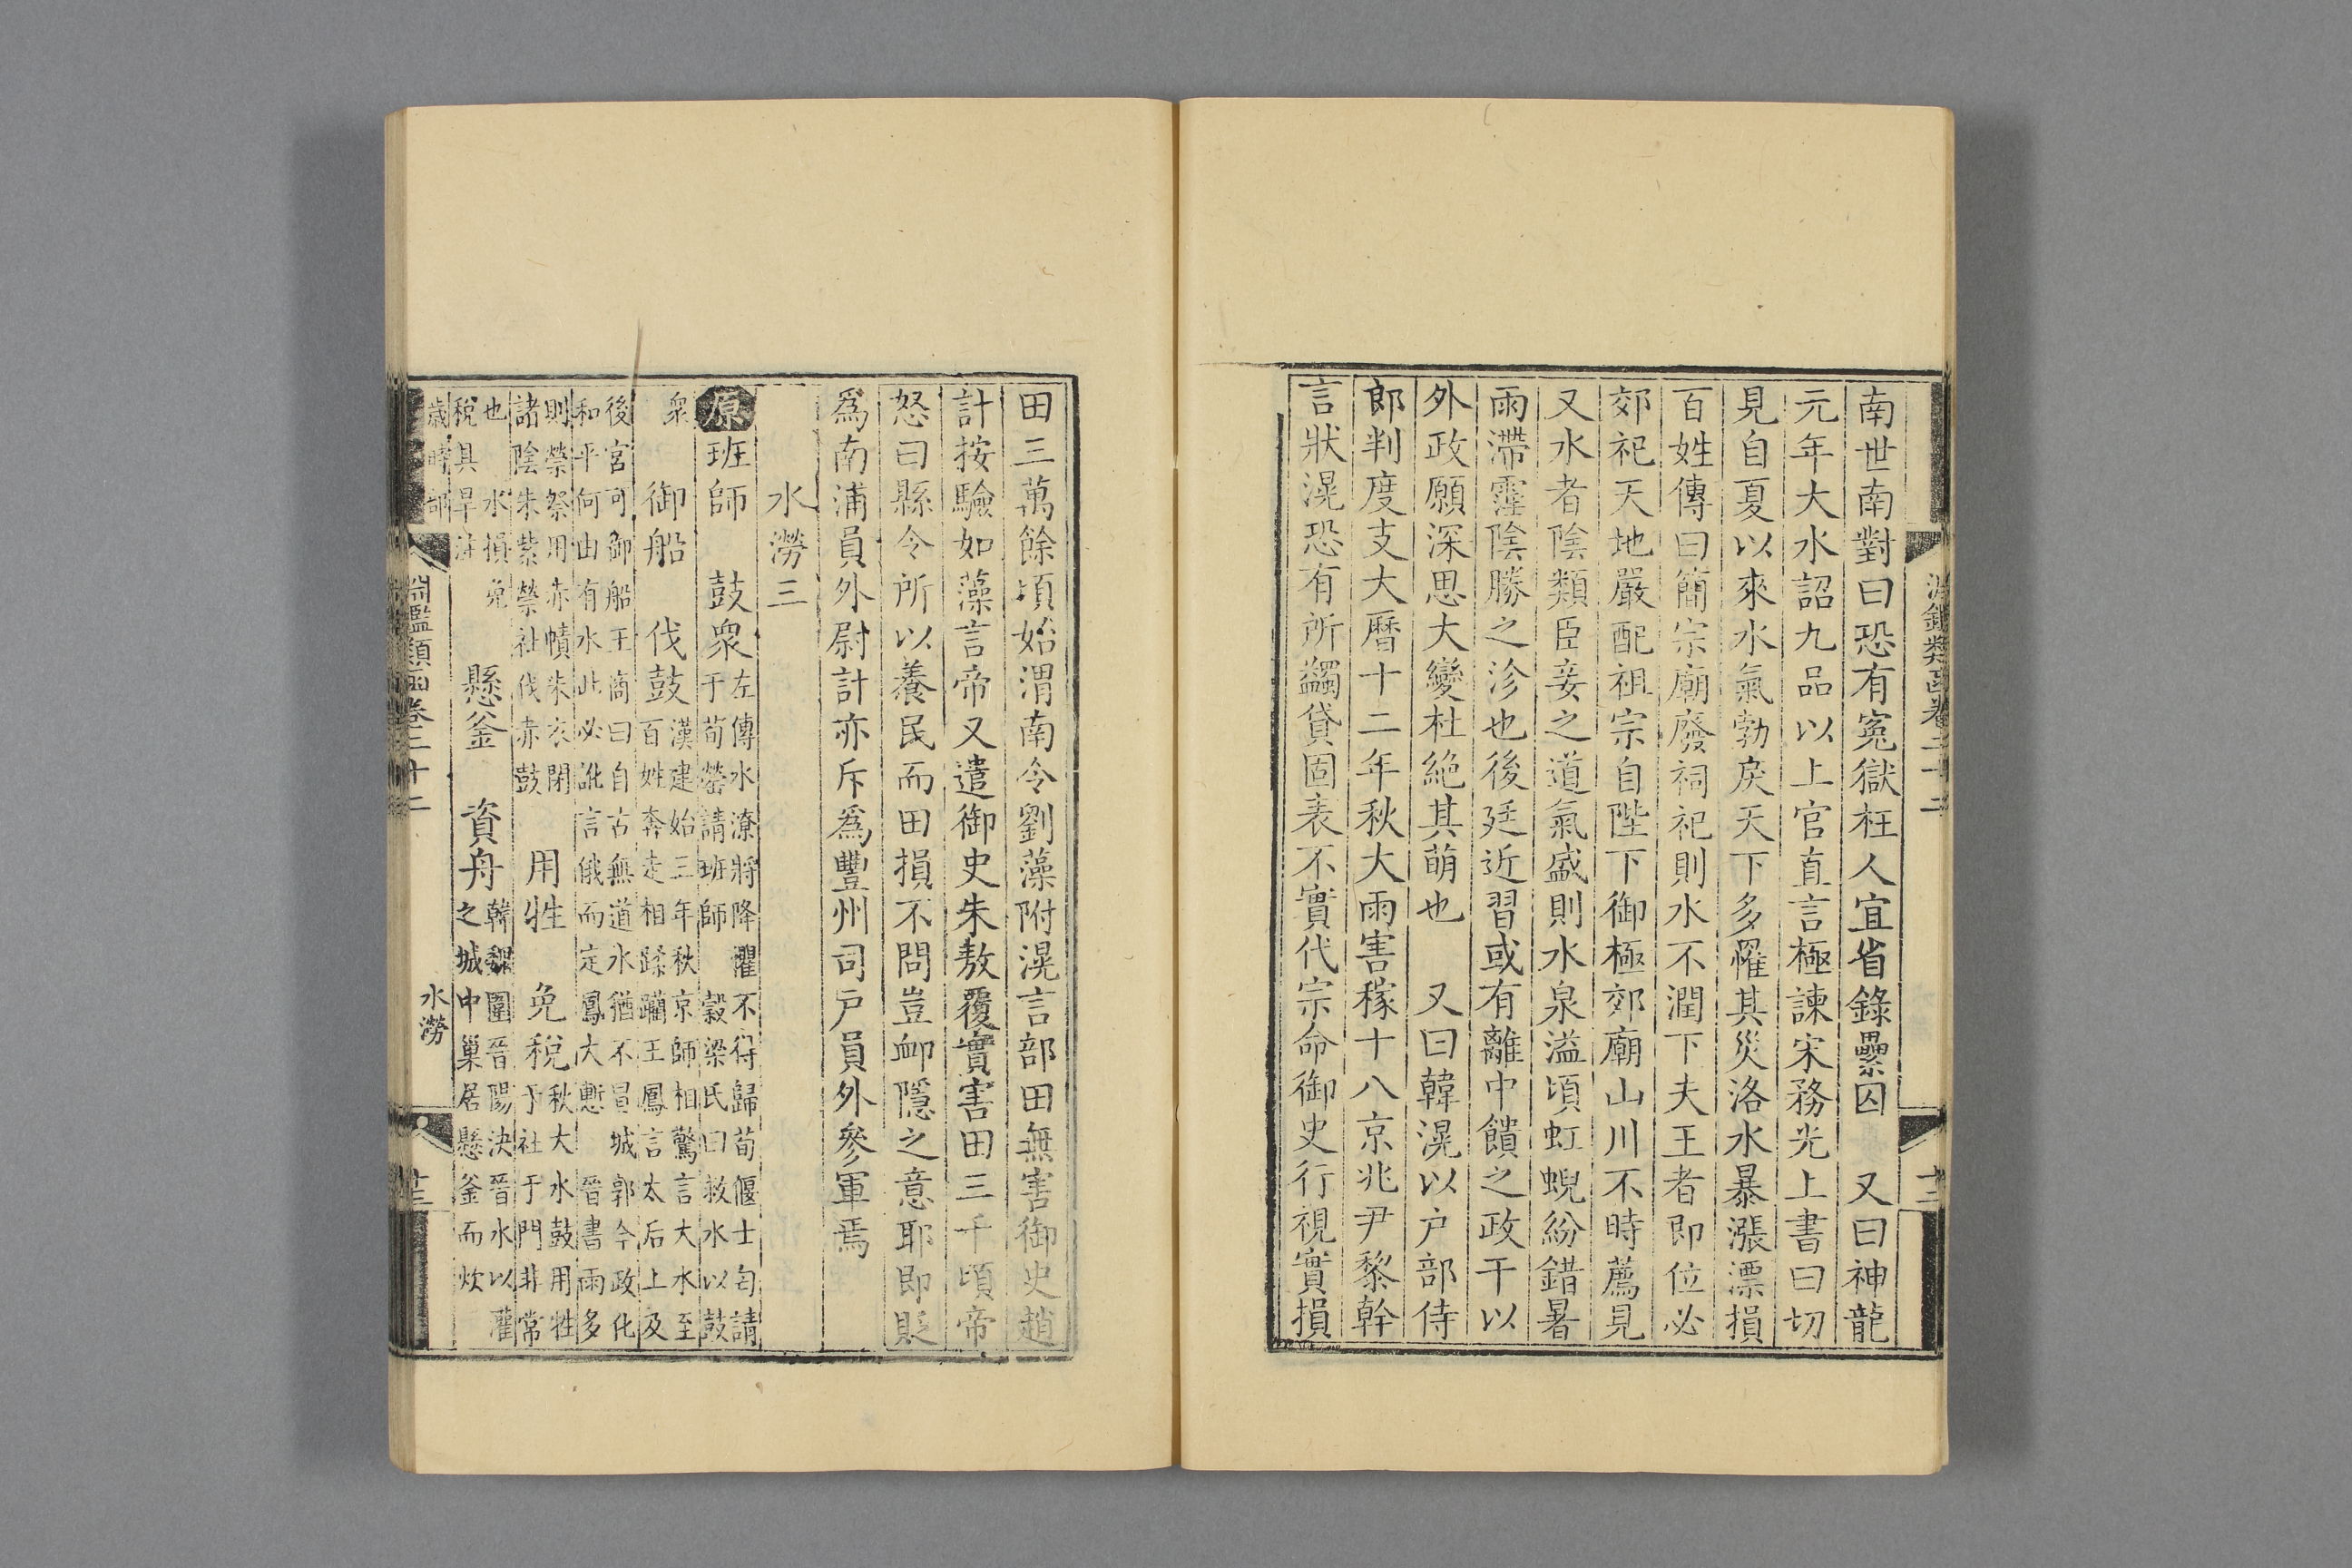 南世南對曰恐有寃獄枉人宜省錄纍囚　又曰神龍
元年大水詔九品以上官直言極諫宋務光上書曰切
見自夏以來水氣勃戾天下多罹其災洛水暴漲漂損
百姓傳曰簡宗廟廢祠祀則水不潤下夫王者即位必
郊祀天地嚴配祖宗自陛下御極郊廟山川不時薦見
又水者陰類臣妾之道氣盛則水泉溢頃虹蜺紛錯暑
雨滯霪陰勝之沴也後廷近習或有離中饋之政干以
外政願深思大變杜絶其萌也　又曰韓滉以户部侍
郎判度支大曆十二年秋大雨害稼十八京兆尹黎幹
言狀滉恐有所蠲貸固表不實代宗命御史行視實損
田三萬餘頃始渭南令劉藻附滉言部田無害御史趙
計按驗如藻言帝又遣御史朱敖覆實害田三千頃帝
怒曰縣令所以養民而田損不問豈卹隱之意耶即貶
爲南浦員外尉計亦斥爲豐州司戶員外參軍焉
水澇三
原 班師　鼓衆
左傳水潦將降懼不得歸荀偃士匄請
于荀罃請班師　穀梁氏曰救水以鼓
衆
御船　伐鼓
漢建始三年秋京師相驚言大水至
百姓奔走相蹂躪王鳳言太后上及
後宮可御船王商曰自古無道水猶不冒城郭今政化
和平何由有水此必訛言俄而定鳳大慙　晉書雨多
則禜祭用赤幘朱衣閉
諸陰朱紫禜社伐赤鼓
用牲　免稅
秋大水鼓用牲
于社于門非常
也　水損免
稅具旱注
懸釜　資舟
韓魏圍晉陽決晉水以灌
之城中巢居懸釜而炊
歲時師
淵鑑類函卷二十二
水澇